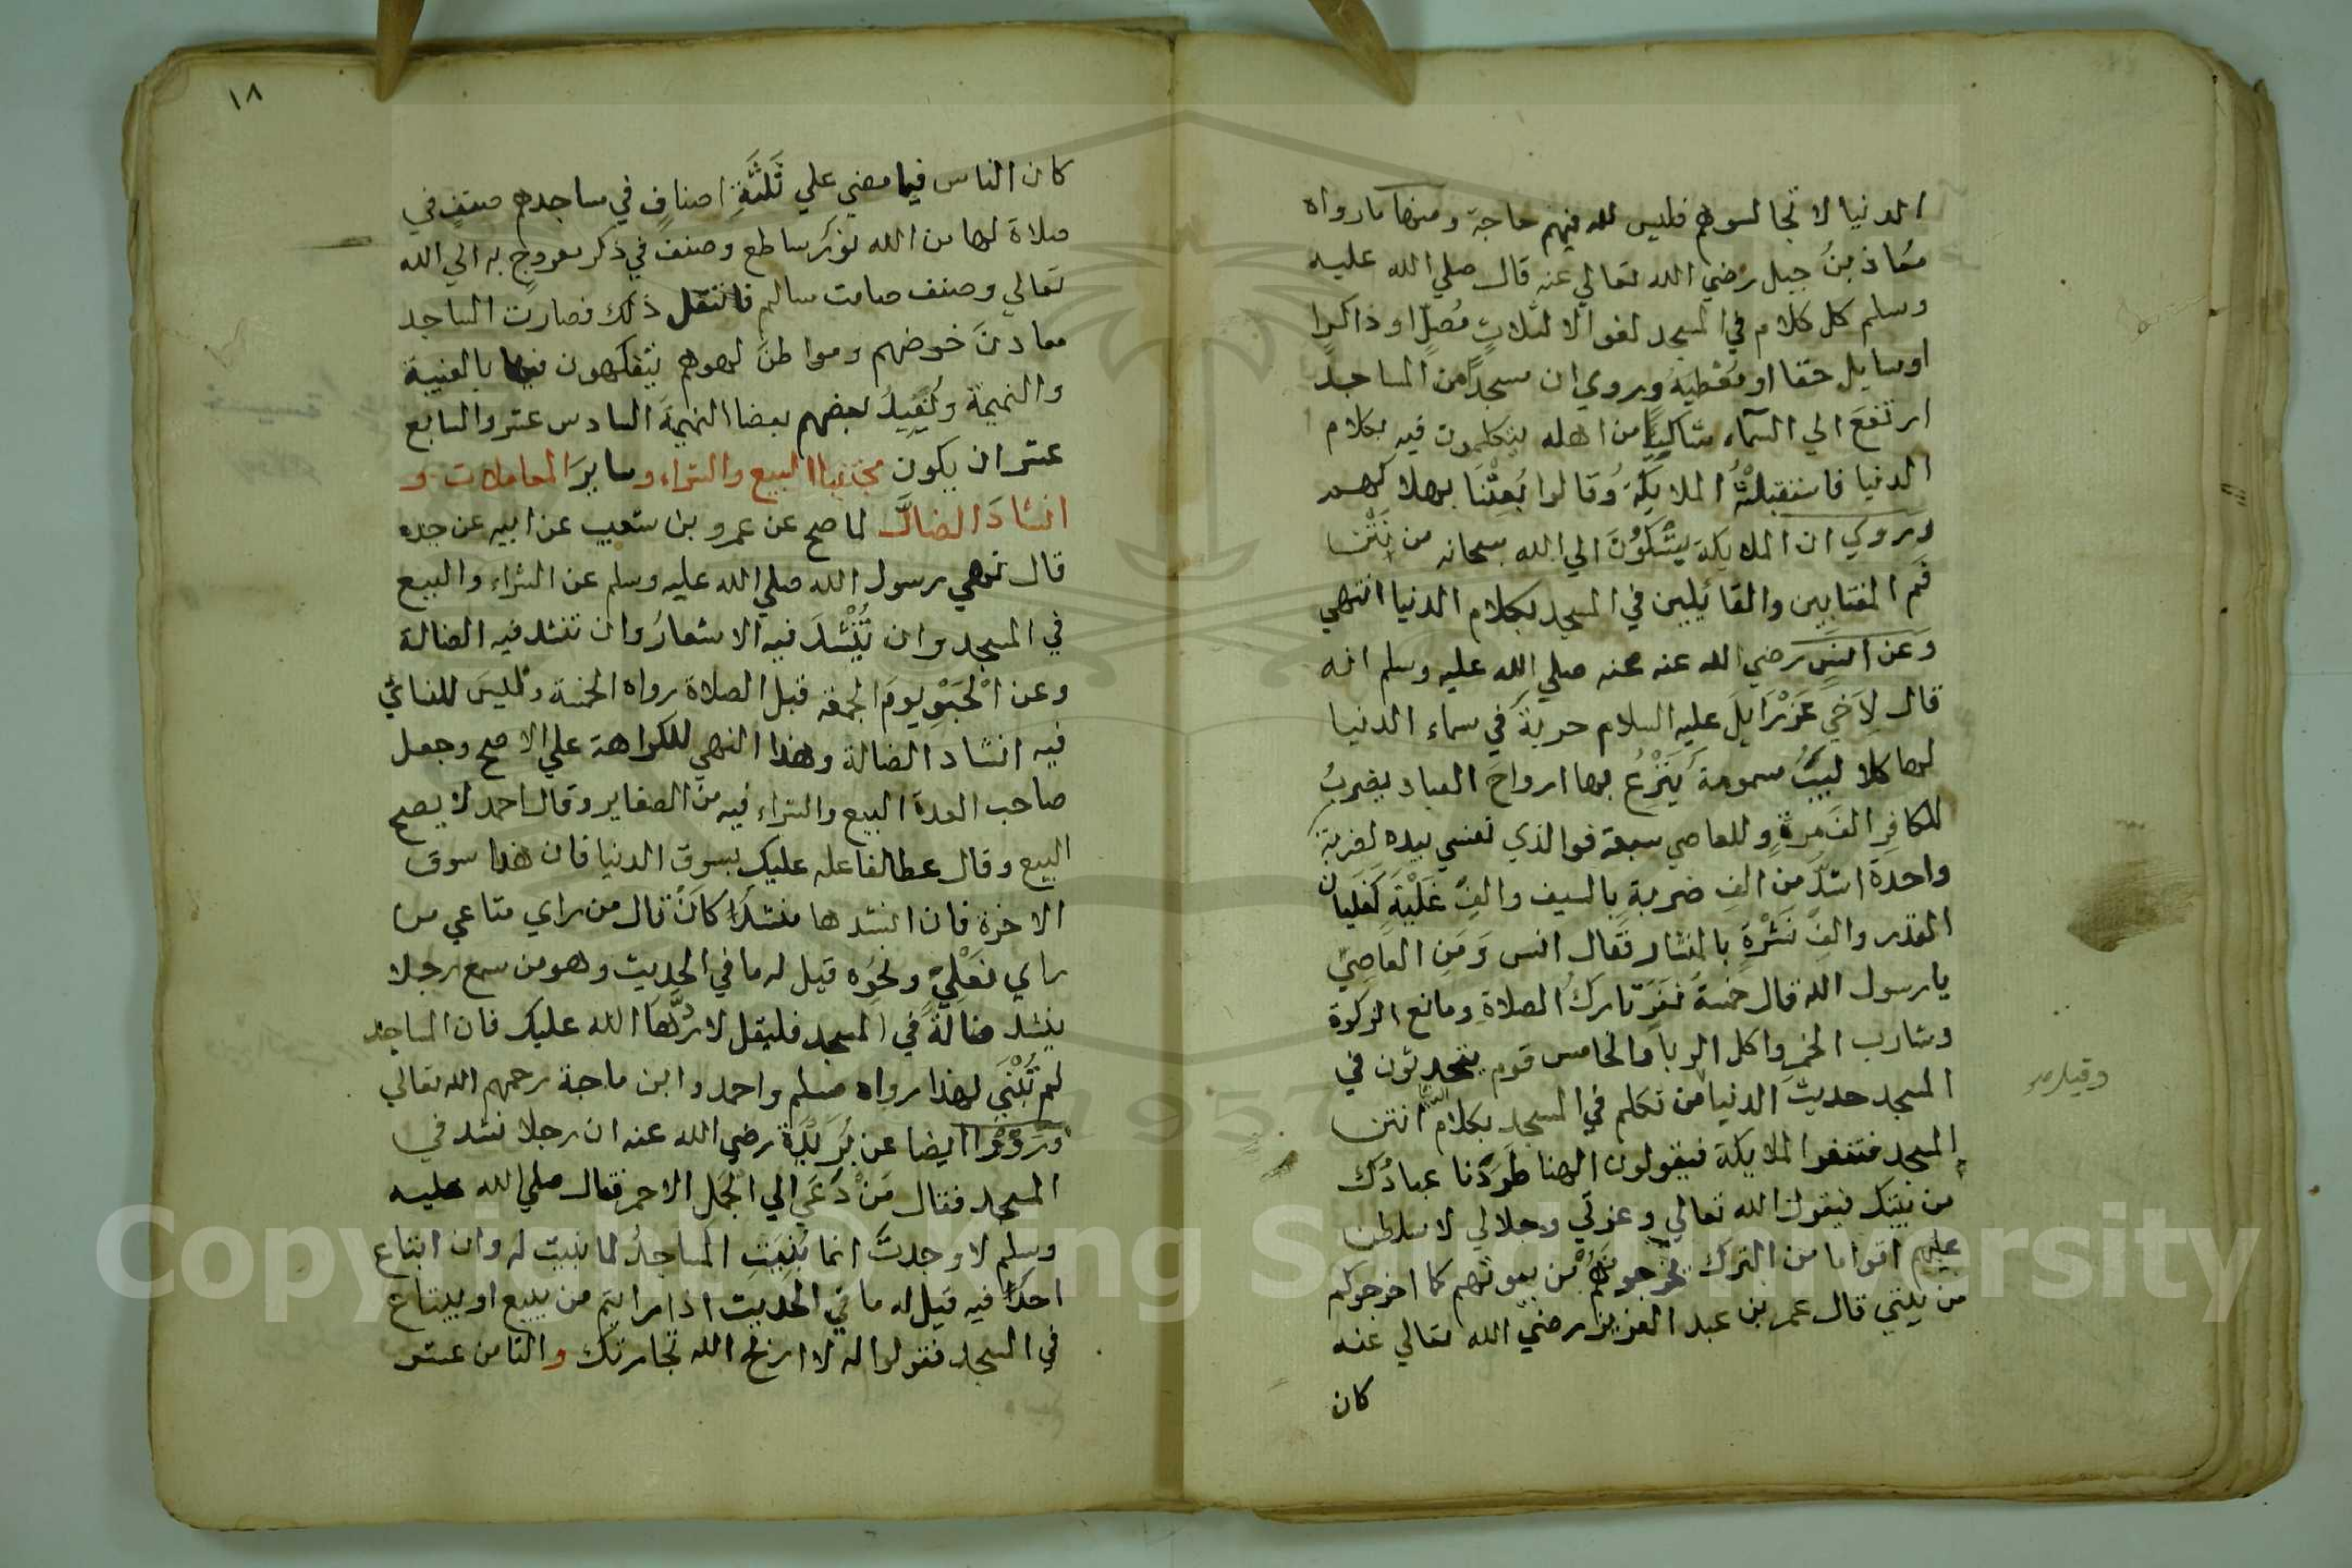 الدنيا لا تجالسوهم فليس لله فيهم حاجة ومنها ما رواه
معُاذ بنُ جبل رضي الله تعالي عنه قال صلي الله عليه
وسلم كل كلام في المسجد لغو الا لثلاثٍ مُصلٍّ او ذاكرا
او سايل حقا او مُعْطيه ويروي ان مسجداً من المساجد
ارتفعَ الي السماء شاكيًا من اهله يتكلمون فيه بكلام
الدنيا فاستقبلتْهُ الملايكة وقالوا بُعِثْنَا بهلاكهم
وروي ان الملايكة يَشْكُوُنَ الي الله سبحانه من نَتْنِ
فَمِ المغتابين والقائلين في المسجد بكلام الدنيا انتهي
وَعَن انسٍ رضي الله عنه عنه صلي الله عليه وسلم انه
قال لِاَخي عَزْرَايلَ عليه السلام حربة في سماء الدنيا
لها كلاليبُ مسمومة يَنْزِعُ بها ارواحَ العباد يضربُ
للكافِرِ الفَ مرةٍ وللعاصي سبعة فوالذي نفسي بيده لضربة
واحدة اشدَّ مِن الفِ ضربةٍ بالسيف والفِ غَلْيَةٍ كَغَليان
القدر والفِ نَشْرَةٍ بالمنشار فقال انس وَمَنِ العاصِي
يا رسول الله قال خمسةُ نَفَرٍ تاركُ الصلاةِ ومانع الزكوة
وشارب الخمرِ واكل الربا والخامس قوم يتحدثون في
المسجد حديثَ الدنيا من تكلم في المسجد بكلام الدنيا انتن
المسجد فتنفر الملايكة فيقولون الهنا طَرَدَنا عبادُك
من بيتك فيقول الله تعالي وعزتي وجلالي لاسلطن
عليهم اقواما من الترك يخرجونَهُمْ من بيوتهم كما اخرجوكم
من بيتي قال عمر بن عبد العزيز رضي الله تعالي عنه
كان
١٨
كان الناس فيما مضي علي ثَلثَةِ اصنافٍ في مساجدهم صنفٍ في
صلاة لها من الله نورٌ ساطع وصنف في ذكر معروج به الي الله
تعالي وصنف صامت سالم فانتقل ذلك فصارت المساجد
معادنَ خوضهم ومواطنَ لهوهم يتفكهون فيها بالغيبة
والنميمة ويُفِيدُ بعضهم بعضا النهيمة السادس عشر والسابع
عشر ان يكون مجتنبا البيع والشراء وساير المعاملات و
انشادَ الضالَّ لما صح عن عمرو بن شعيب عن ابيه عن جده
قال نهي رسول الله صلي الله عليه وسلم عن الشراء والبيع
في المسجد وان يُنْشَدَ فيه الاشعارُ وان تنشد فيه الضالة
وعن الْحَبْوِ يومَ الجمعة قبل الصلاة رواه الخمسة وليسَ للنسائي
فيه انشاد الضالة وهذا النهي للكراهة علي الاصح وجعل
صاحب العدة البيع والشراء فيه من الصغاير وقال احمد لا يصح
البيع وقال عطا لفاعله عليك بسوق الدنيا فان هذا سوق
الاخرة فان انشدها منشدًا كَانَ قال من راي متاعي من
راي نَعْلِيْ ونحوه قيل له ما في الحديث وهو من سمع رجلا
ينشد ضالةً في المسجد فليقل لا ردَّهَا الله عليك فان المساجد
لم تُبْنَي لهذا رواه مسلم واحمد وابن ماجة رحمهم الله تعالي
ورَوَوْا ايضا عن بُرَيْدَة رضي الله عنه ان رجلا نشد في
المسجد فقال مَنْ دَعَي الي الجَمَل الاحمر فقال صلي الله عليه
وسلم لا وجدتَ انما بُنِيَتِ المساجدُ لما بنيت له وان ابتاع
احدًا فيه قيل له ما في الحديث اذا رايتم من يبيع او يبتاع
في المسجد فقولوا له لا اربح الله تجارتك والثامن عشر
Copyright © King Saud University
1957